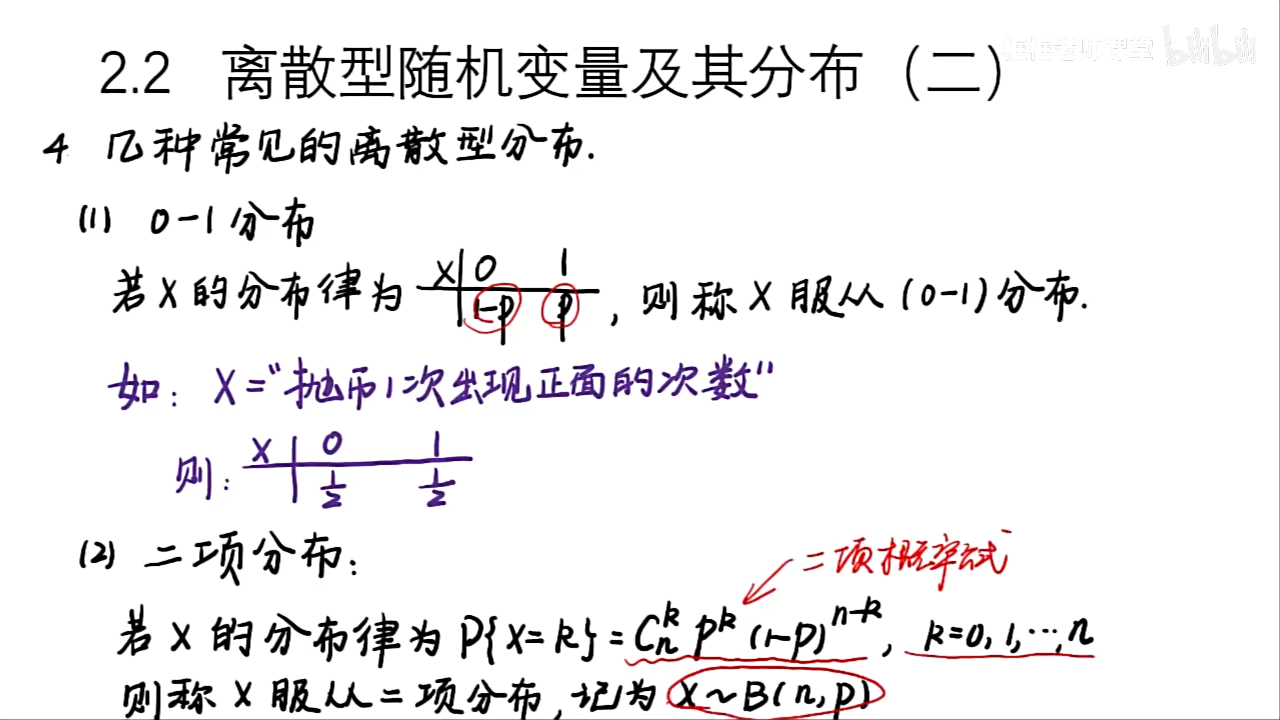 2.2 离散型随机变量及其分布（二）
bilibili
4 几种常见的离散型分布.
(1) 0-1分布
若X的分布律为 X 0 1
1-p p ，则称X服从(0-1)分布.
如：X="抛币1次出现正面的次数"
则： X 0 1
1/2 1/2
(2) 二项分布：
二项概率公式
若X的分布律为P{X=k}=C_n^k p^k (1-p)^{n-k}, k=0,1,…,n
则称X服从二项分布,记为 X~B(n,p)